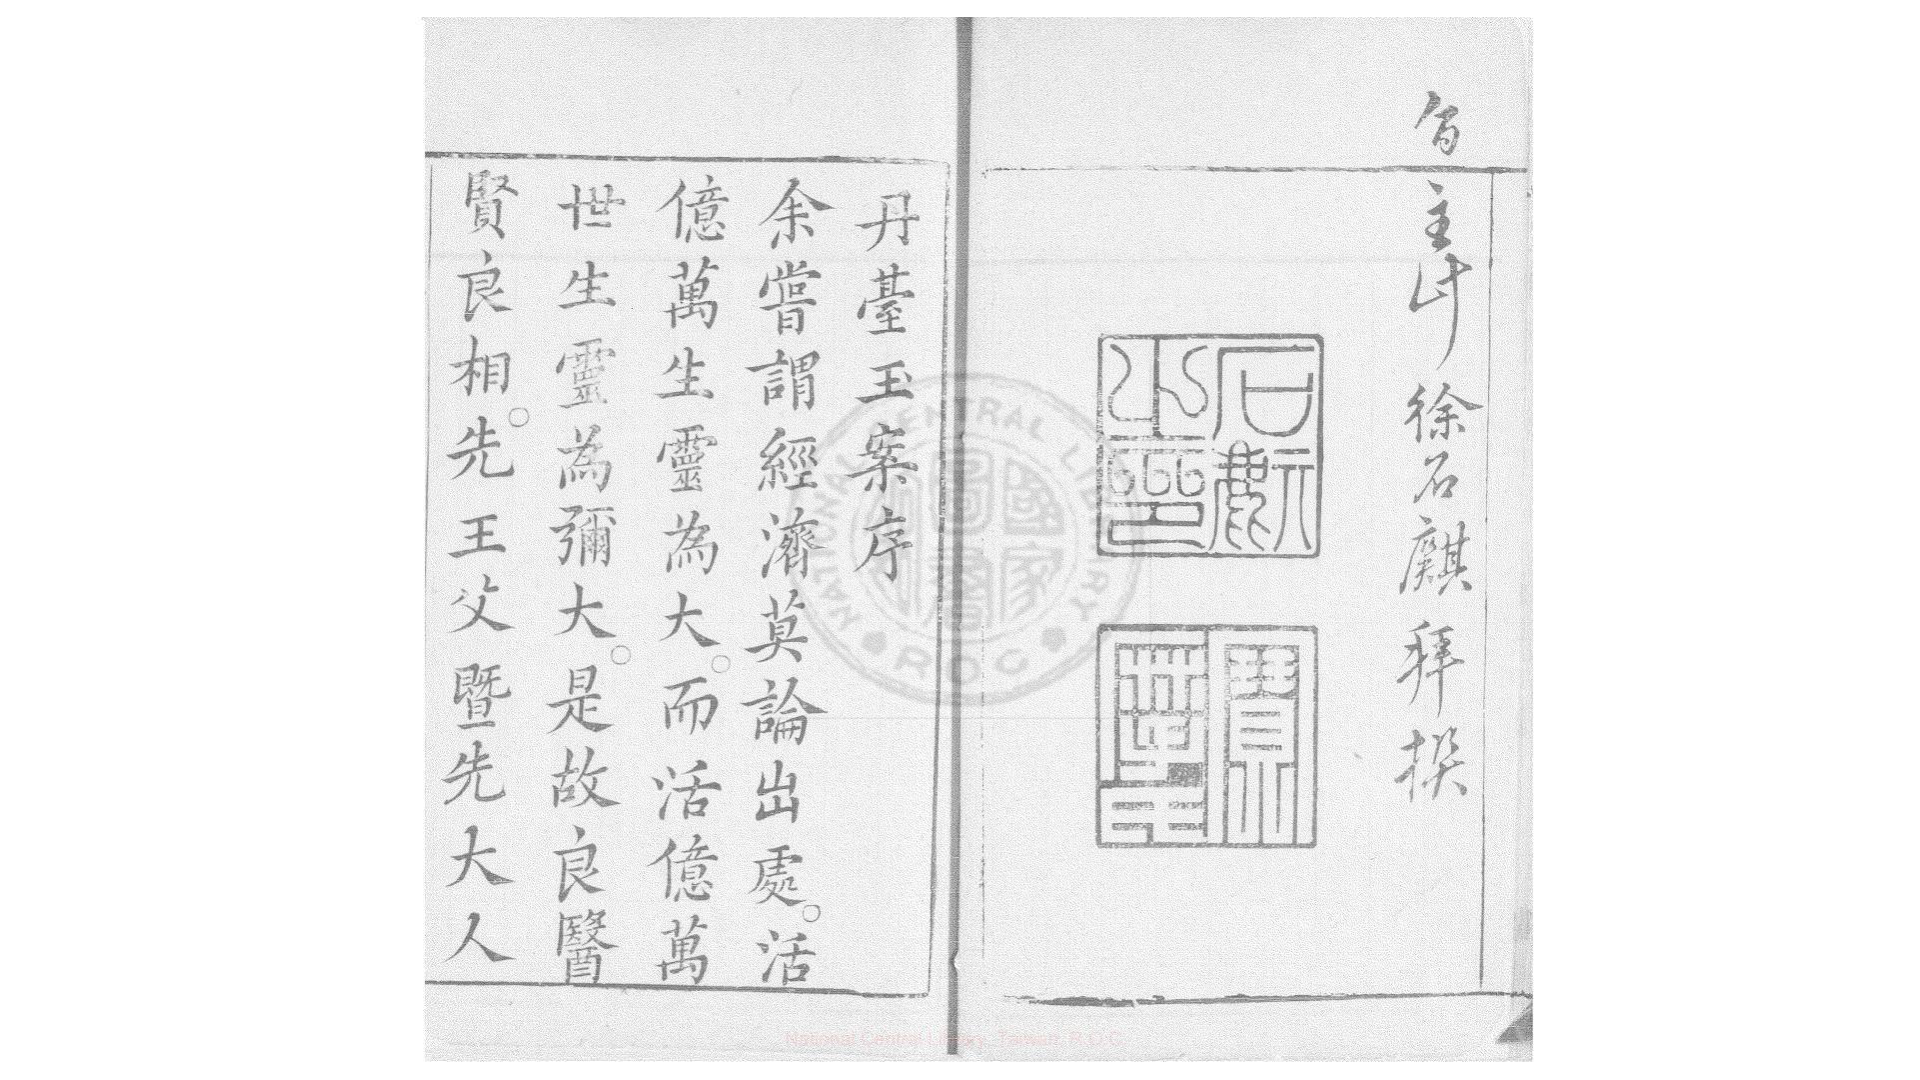 主
徐石麒拜撰
石麒之印
丹臺玉案序
余嘗謂經濟莫論出處。活
億萬生靈為大。而活億萬
世生靈為彌大。是故良醫
賢良相。先王父暨先大人
NATIONAL CENTRAL LIBRARY
ROC
國家圖書
National Central Library, Taiwan, R.O.C